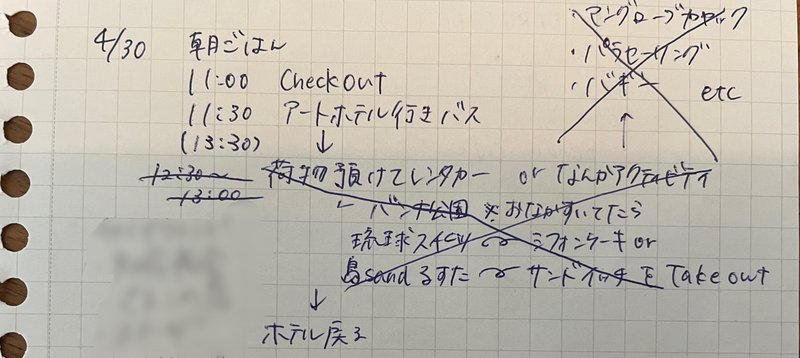 4/30 朝ごはん
11:00 Checkout
11:30 アートホテル行きバス
(13:30) ↓
12:30〜 荷物預けてレンタカー or なんかアクティビティ
13:00 バンナ公園 ※おなかすいてたら
琉球スイーツ シフォンケーキ or
島sand るすた サンドイッチをTakeout
↓
ホテル戻る
・マングローブカヤック
・パラセーリング
・バギー etc
↑